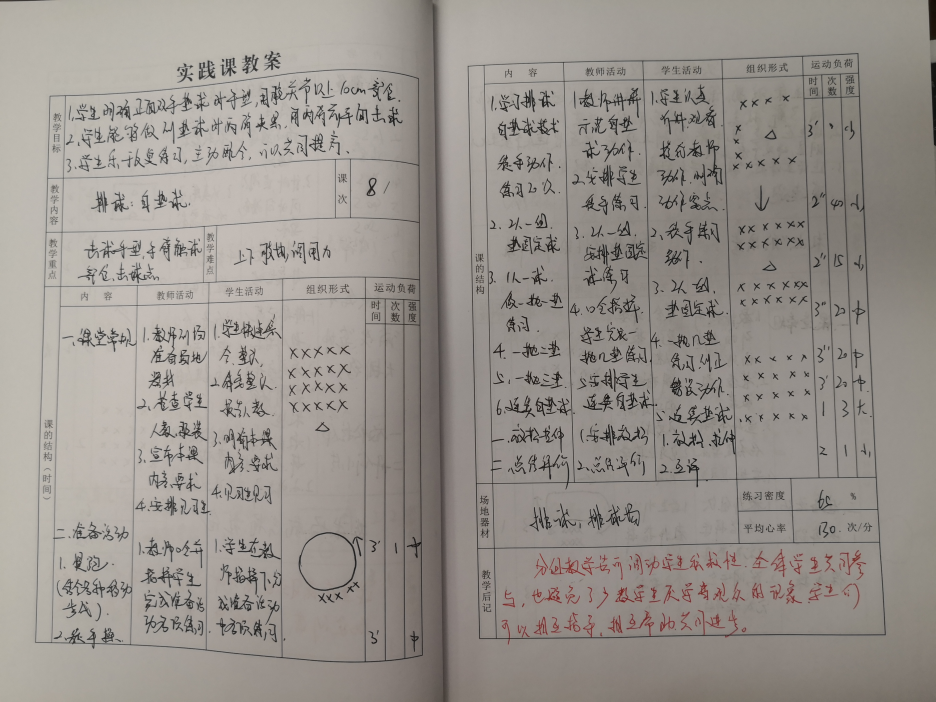 实践课教案
教学目标
1.学生明确正面双手垫球时手型,用腕关节以上10cm击球
2.学生能够做到垫球时两臂夹紧,用两臂前平面击球
3.学生乐于反复练习,主动配合,以求共同提高.
教学内容
排球:自垫球.
课次
81
教学重点
击球手型,手臂触球
部位,击球点
教学难点
上下肢协调用力
课的结构(时间)
内 容 教师活动 学生活动 组织形式 运动负荷
时间 次数 强度
一.课堂常规
1.教师到场
准备场地
器材
2.检查学生
人数,服装
3.宣布本课
内容,要求
4.安排见习生
1.学生快速集
合,整队
2.体委整队
报告人数
3.明确本课
内容,要求
4.见习生见习
×××××
×××××
×××××
×××××
△
二.准备活动
1.慢跑
(结合各种移动
步伐).
2.徒手操.
1.教师口令并
指挥学生
完成准备活
动各项练习
1.学生在教
师指挥下,完
成准备活动
中各项练习.
××××
3' 1 中
3' 中
课的结构
内 容 教师活动 学生活动 组织形式 运动负荷
时间 次数 强度
1.学习排球
自垫球技术
徒手动作.
练习20次.
2.2人一组.
垫固定球
3.1人一球.
做一抛一垫
练习.
4.一抛二垫
5.一抛三垫.
6.连续自垫球.
一.放松拉伸
二.总结评价
1.教师讲解
示范自垫
球动作.
2.安排学生
徒手练习.
3.2人一组.
安排垫固定
球练习
4.口令指挥
学生完成一
抛几垫练习
5.安排学生
连续自垫球
1.安排放松
2.总结评价
1.学生认真
听讲,观看
教师
动作,明确
动作要点
2.徒手练习
动作.
3.2人一组.
垫固定球.
4.一抛几垫
练习,纠正
错误动作.
5.连续垫球
1.放松,拉伸
2.互评
××××
×
×
△
×××××
↓
×××××
×××××
△
×××××
×××××
×××××
×××××
×××××
×××××
3' 小
2" 40 小
2" 15 小
3" 20 中
3" 20 中
3' 20 中.
1 3 大
2 1 小
场地器材
排球,排球场
练习密度 65 %
平均心率 130. 次/分
教学后记
分组教学法可调动学生积极性.全体学生共同参
与,也避免了少数学生在学旁观众的现象.学生们
可以相互指导,相互帮助共同进步。